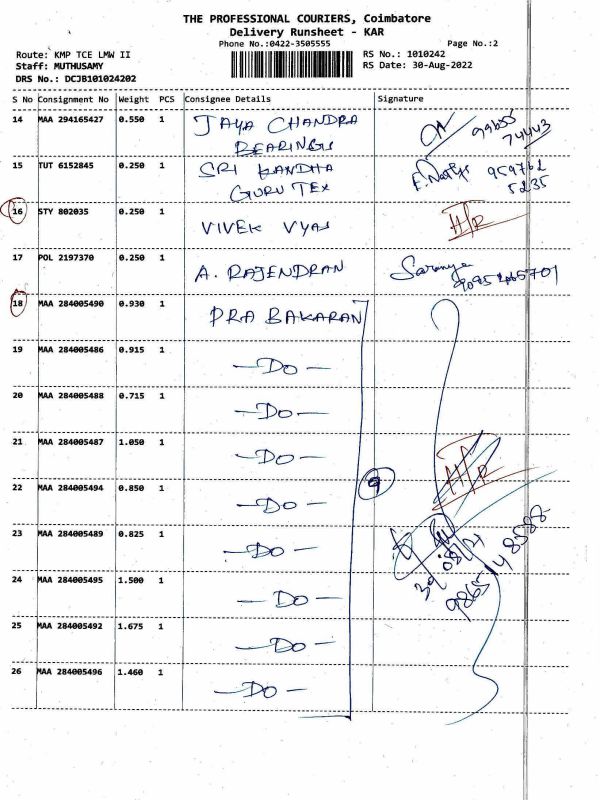 THE PROFESSIONAL COURIERS, Coimbatore
Delivery Runsheet - KAR
Phone No.:0422-3505555
Page No.:2
Route: KMP TCE LMW II
RS No.: 1010242
Staff: MUTHUSAMY
RS Date: 30-Aug-2022
DRS No.: DCJB101024202
S No Consignment No Weight PCS Consignee Details Signature
14 MAA 294165427 0.550 1 JAYA CHANDRA 99655
BEARINGS 74443
15 TUT 6152845 0.250 1 SRI KANDHA 959762
GURU TEX 5235
16 STY 802035 0.250 1 VIVEK VYAS
17 POL 2197370 0.250 1 A. RAJENDRAN Saranya
18 MAA 284005490 0.930 1 PRABAKARAN
19 MAA 284005486 0.915 1 -DO-
20 MAA 284005488 0.715 1 -DO-
21 MAA 284005487 1.050 1 -DO-
22 MAA 284005494 0.850 1 -DO- 9
23 MAA 284005489 0.825 1 -DO-
24 MAA 284005495 1.500 1 -DO- 98651 48588
25 MAA 284005492 1.675 1 -DO-
26 MAA 284005496 1.460 1 -DO-